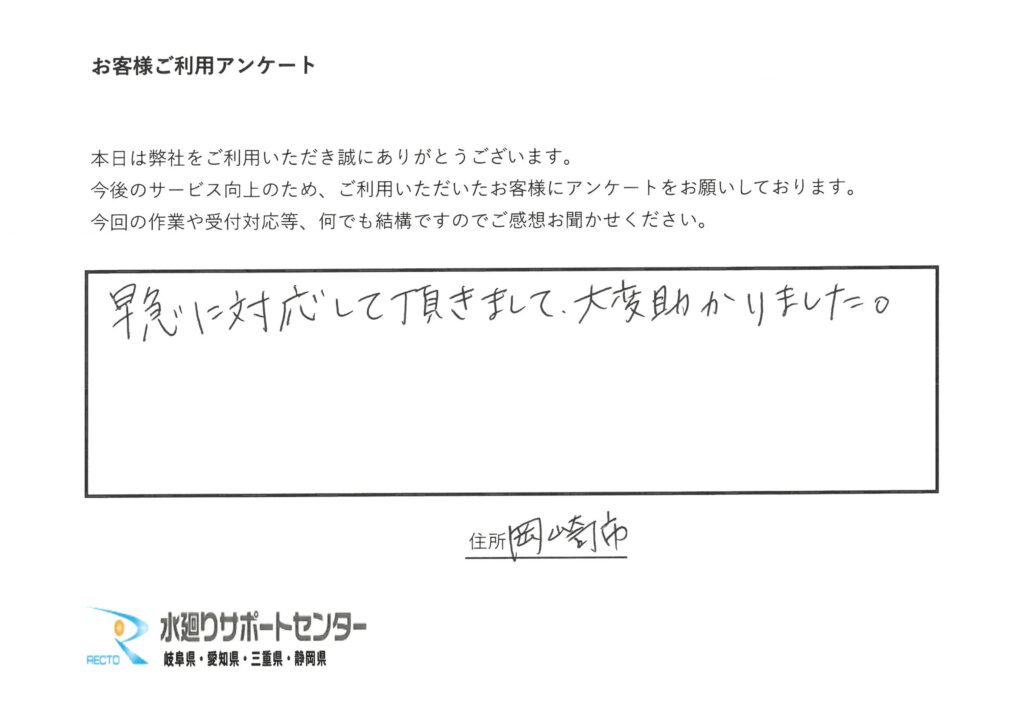 お客様ご利用アンケート
本日は弊社をご利用いただき誠にありがとうございます。
今後のサービス向上のため、ご利用いただいたお客様にアンケートをお願いしております。
今回の作業や受付対応等、何でも結構ですのでご感想お聞かせください。
早急に対応して頂きまして、大変助かりました。
住所 岡崎市
RECTO 水廻りサポートセンター
岐阜県・愛知県・三重県・静岡県